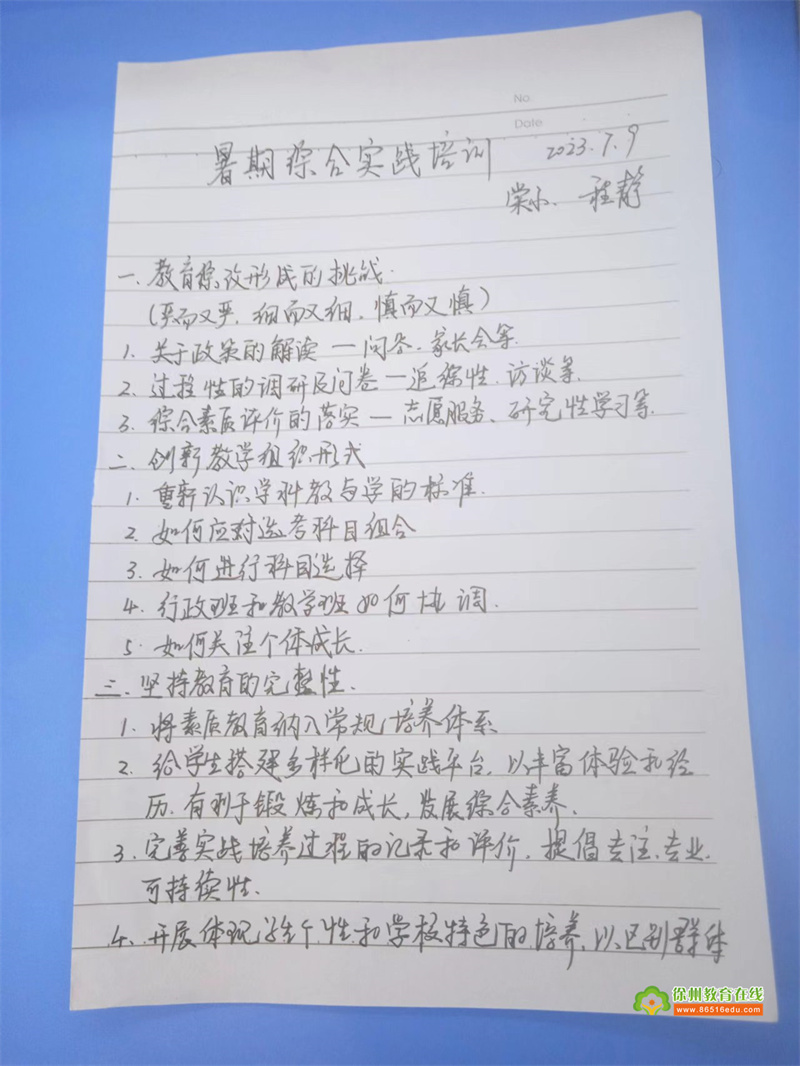 No.
Date
暑期综合实践培训 2023.7.9
棠小. 程静
一. 教育综改形成的挑战.
(严而又严, 细而又细, 慎而又慎)
1. 关于政策的解读 — 问答. 家长会等.
2. 过程性的调研及问卷 — 追综性. 访谈等.
3. 综合素质评价的落实 — 志愿服务、研究性学习等.
二. 创新教学组织形式
1. 重新认识学科教与学的标准.
2. 如何应对选考科目组合
3. 如何进行科目选择
4. 行政班和教学班如何协调.
5. 如何关注个体成长.
三. 坚持教育的完整性.
1. 将素质教育纳入常规培养体系
2. 给学生搭建多样化的实践平台, 以丰富体验和经
历. 有利于锻炼和成长, 发展综合素养.
3. 完善实战培养过程的记录和评价. 提倡专注、专业.
可持续性.
4. 开展体现学生个性和学校特色的培养, 以区别群体
徐州教育在线
www.86516edu.com